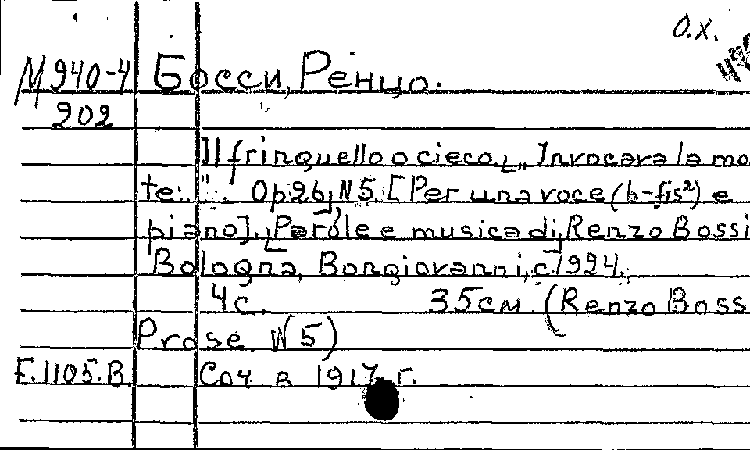 О.х.
М940-4 Босси, Ренцо.
202
Il fringuello o cieco. „Invocava la mo
te..". Op.26, N5. [Per una voce (h-fis²) e
piano]. Parole e musica di Renzo Bossi
Bologna, Bongiovanni, c.1924.
4 с. 35 см. (Renzo Boss
Prose N5)
Е.1105.В Соч в 1917 г.